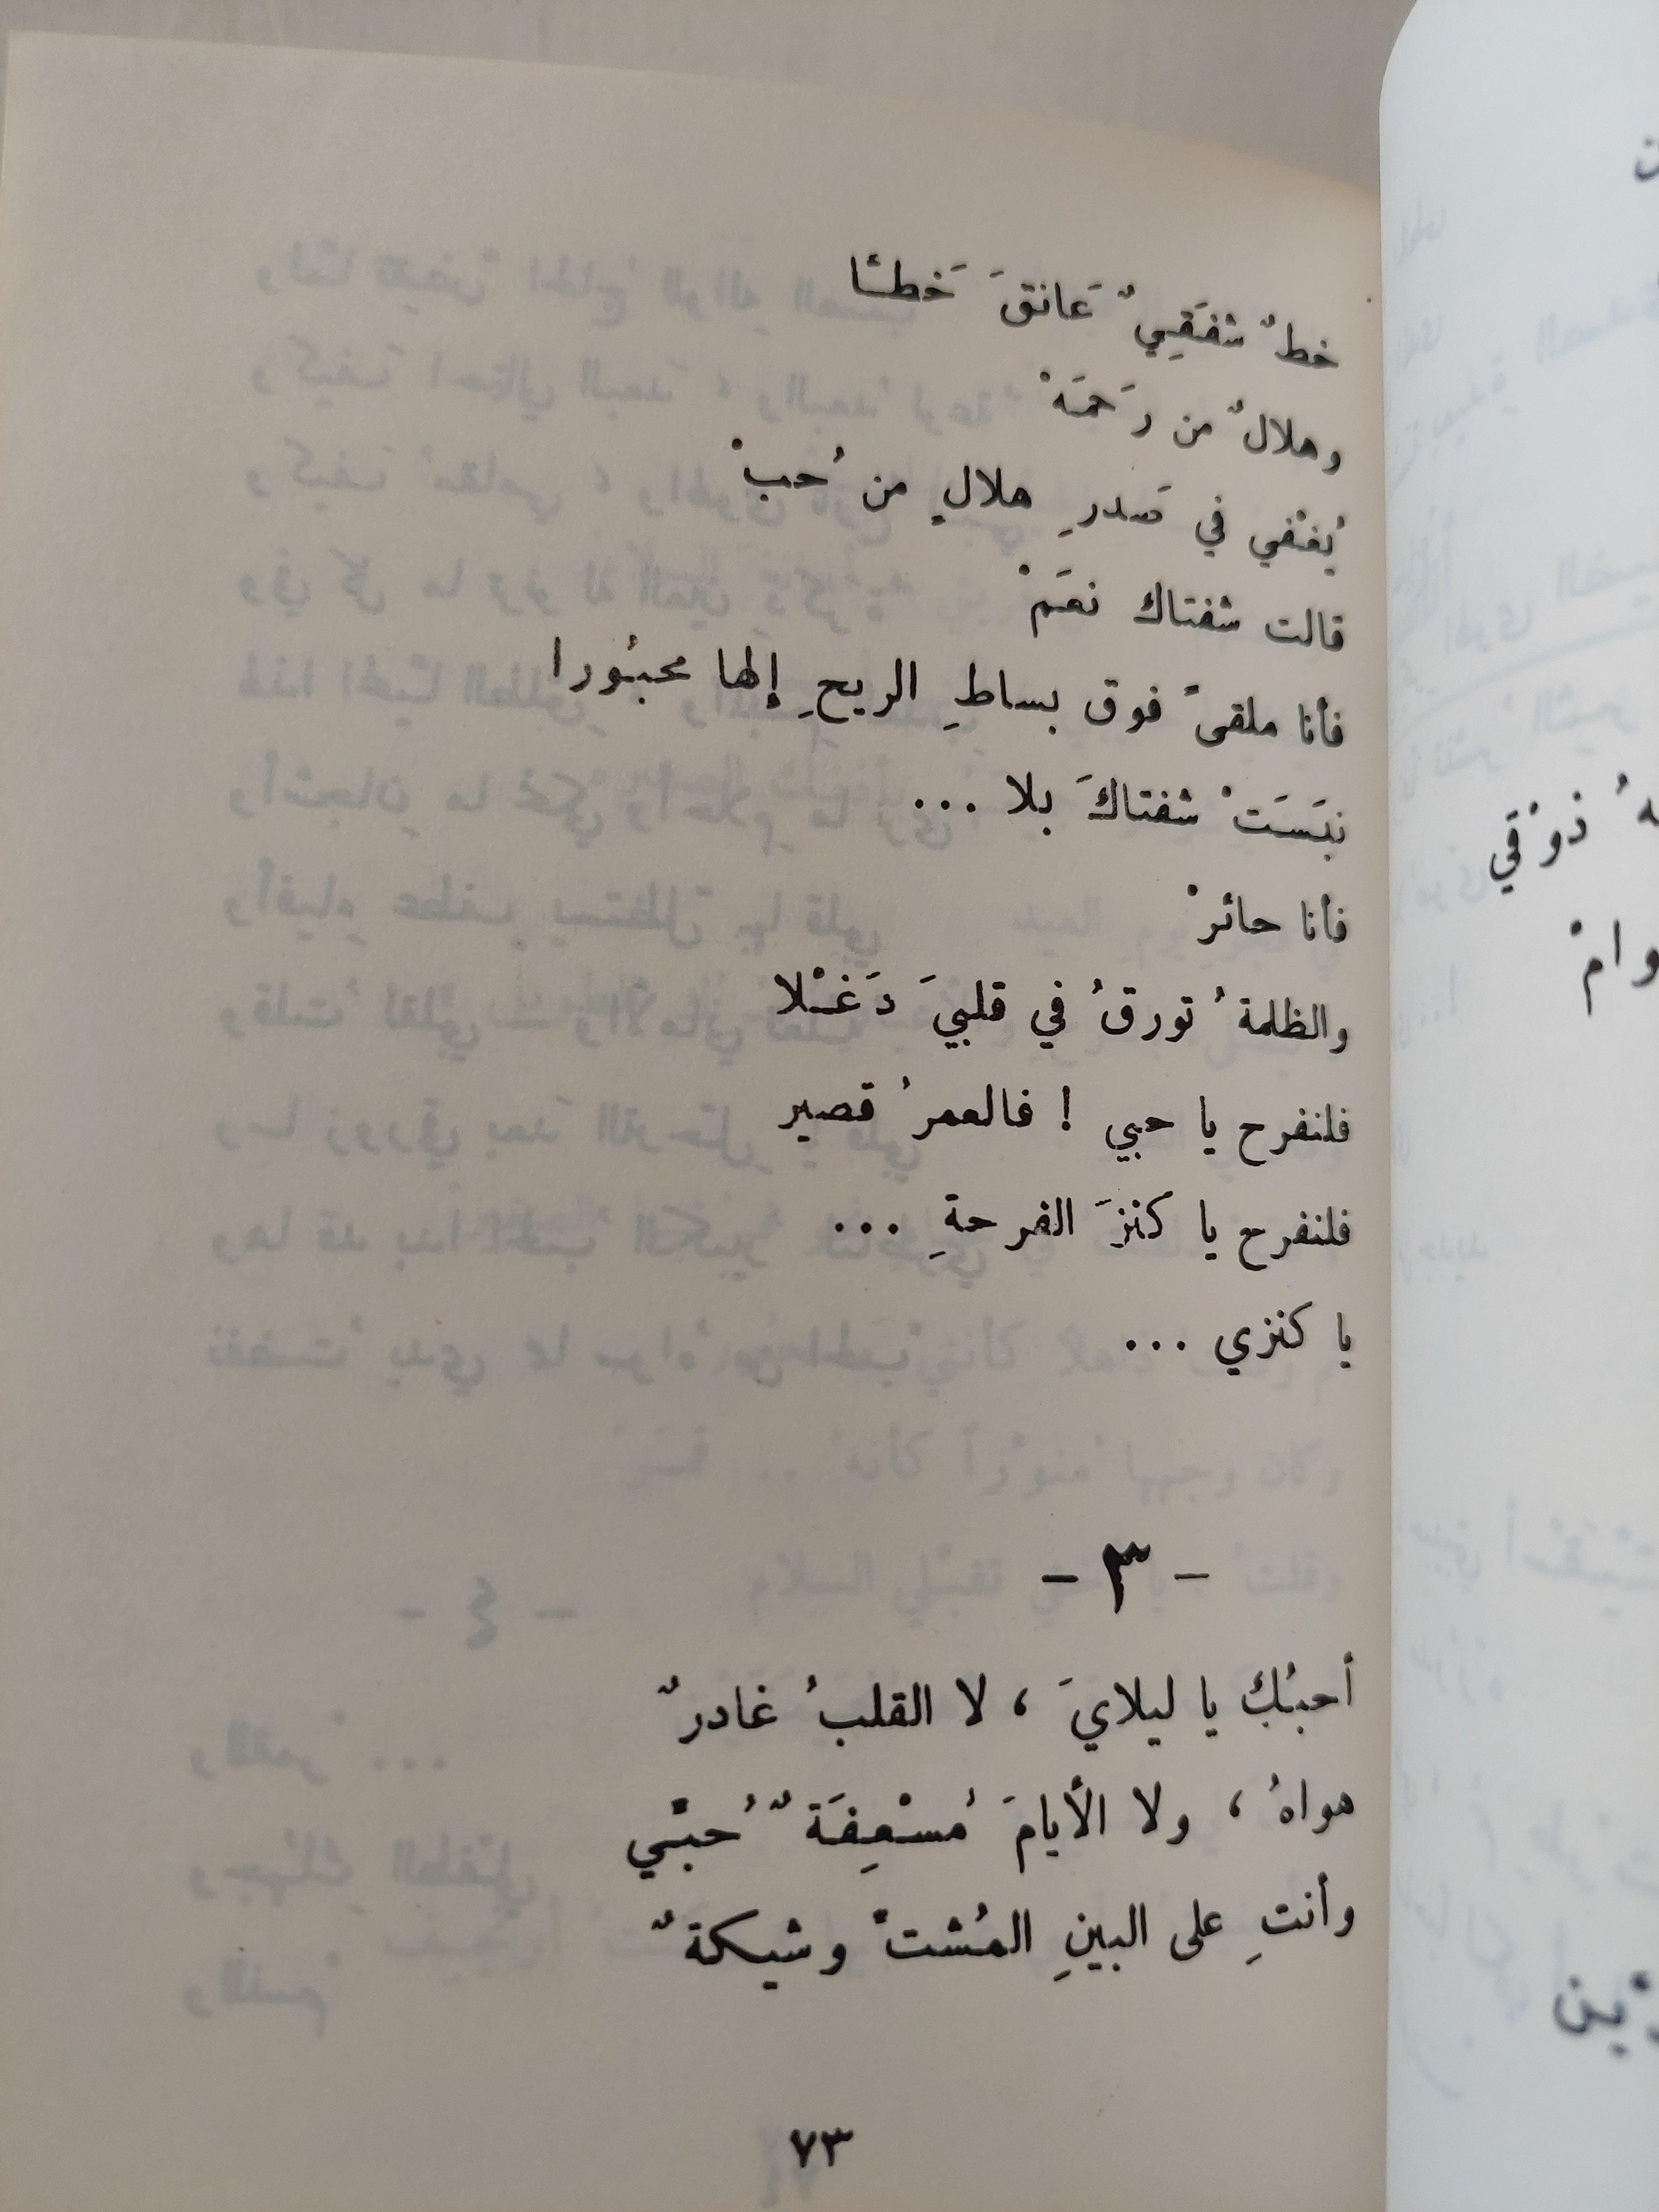 خطٌ شفَقِيٌ عَانقَ خَطًّا
وهلالٌ من رَحمَهْ
يُغْفي في صَدرِ هلالٍ من حُبْ
قالت شفتاك نعَمْ
فأنا ملقىً فوق بساطِ الريحِ إلها محبُورا
نبَسَتْ شفتاكَ بلا ...
فأنا حائرْ
والظلمةُ تورقُ في قلبيَ دَغْلا
فلنفرح يا حبي ! فالعمرُ قصير
فلنفرح يا كنزَ الفرحةِ ...
يا كنزي ...
- ٣ -
أحبُكِ يا ليلايَ ، لا القلبُ غادرٌ
هواهُ ، ولا الأيامَ مُسْعِفَةٌ حُبّي
وأنتِ على البينِ المُشتّ وشيكةٌ
٧٣
ذوْقي
وامْ